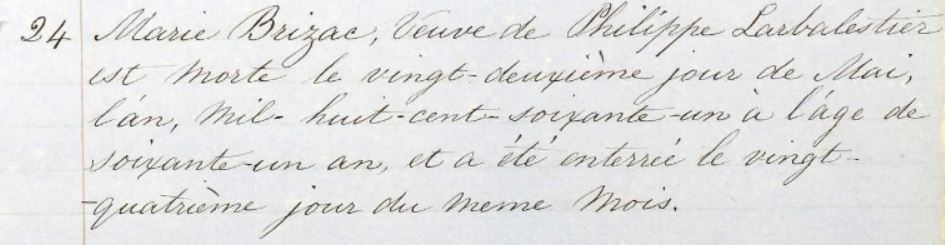 24 Marie Brizac, Veuve de Philippe Larbalestier
est morte le vingt-deuxième jour de Mai,
l'án, Mil-huit-cent-soixante-un à l'áge de
soixante-un an, et a été enterrée le vingt-
-quatrième jour du meme Mois.